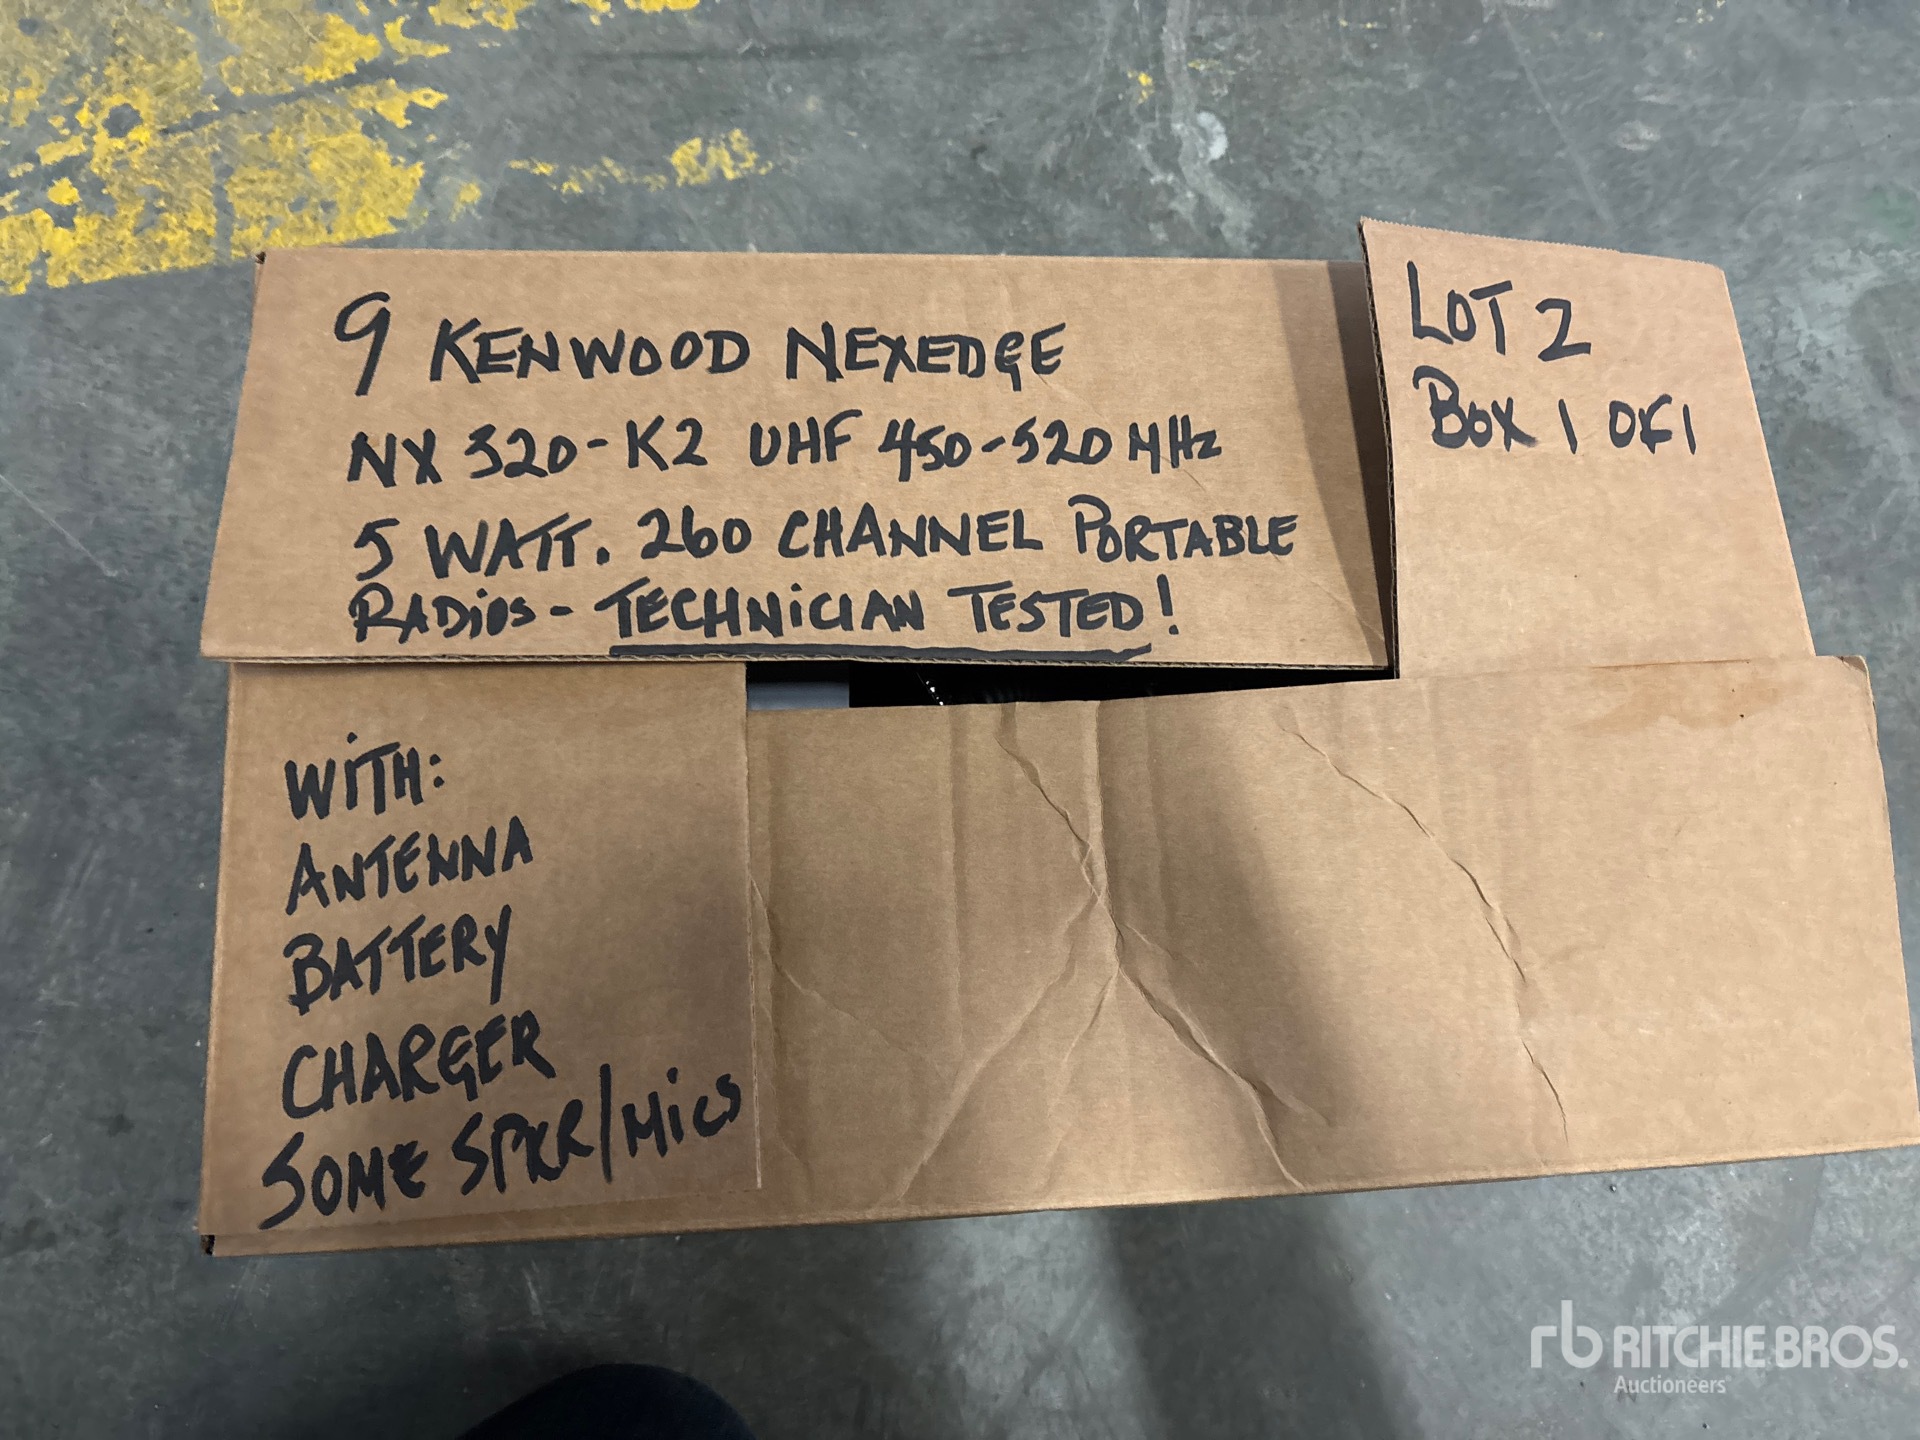 9 KENWOOD NEXEDGE
NX 320-K2 UHF 450-520 MHz
5 WATT. 260 CHANNEL PORTABLE
RADiOS - TECHNiCIAN TESTED!
LOT 2
BOX 1 OF 1
WiTH:
ANTENNA
BATTERY
CHARGER
SOME SPKR/MiCS
rb RITCHIE BROS.
Auctioneers